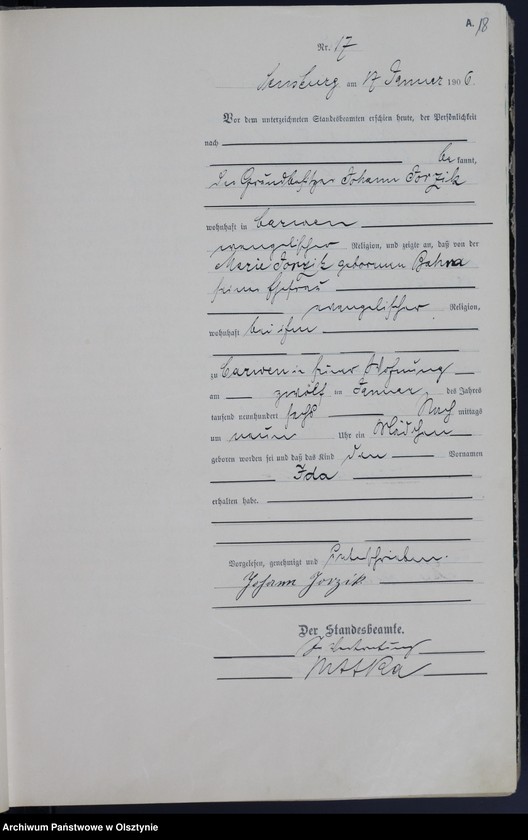 A. 18
Nr. 17
Sensburg am 17 Januar 1906.
Vor dem unterzeichneten Standesbeamten erschien heute, der Persönlichkeit
nach
be kannt,
der Grundbesitzer Johann Jorzik
wohnhaft in Carwen
evangelischer Religion, und zeigte an, daß von der
Marie Jorzik geborenen
seiner Ehefrau
evangelischer Religion,
wohnhaft bei ihm
zu Carwen in seiner Wohnung
am zwölf ten Januar des Jahres
tausend neunhundert sechs Nach mittags
um neun Uhr ein Mädchen
geboren worden sei und daß das Kind den Vornamen
Ida
erhalten habe.
Vorgelesen, genehmigt und unterschrieben.
Johann Jorzik
Der Standesbeamte.
In Vertretung
Archiwum Państwowe w Olsztynie